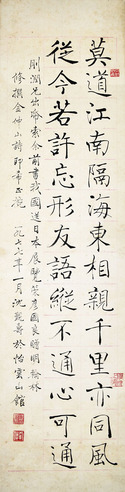 莫道江南隔海東相親千里亦同風
從今若許忘形友語縱不通心可通
剛潤兄出紙索余前書我國送日本展覽葉彥國良贈明翰林
修撰金仲山詩即希正腕 一九七六年一月沈觀壽於怡雲山館